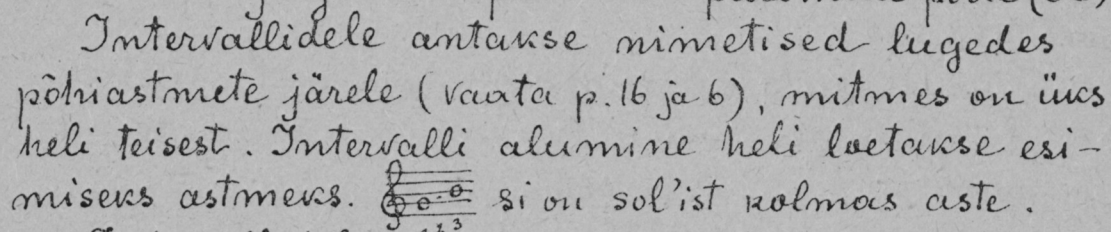 Intervallidele antakse nimetised lugedes
põhiastmete järele (vaata p. 16 ja 6), mitmes on üks
heli teisest. Intervalli alumine heli loetakse esi-
miseks astmeks. si on sol'ist kolmas aste.
1 2 3